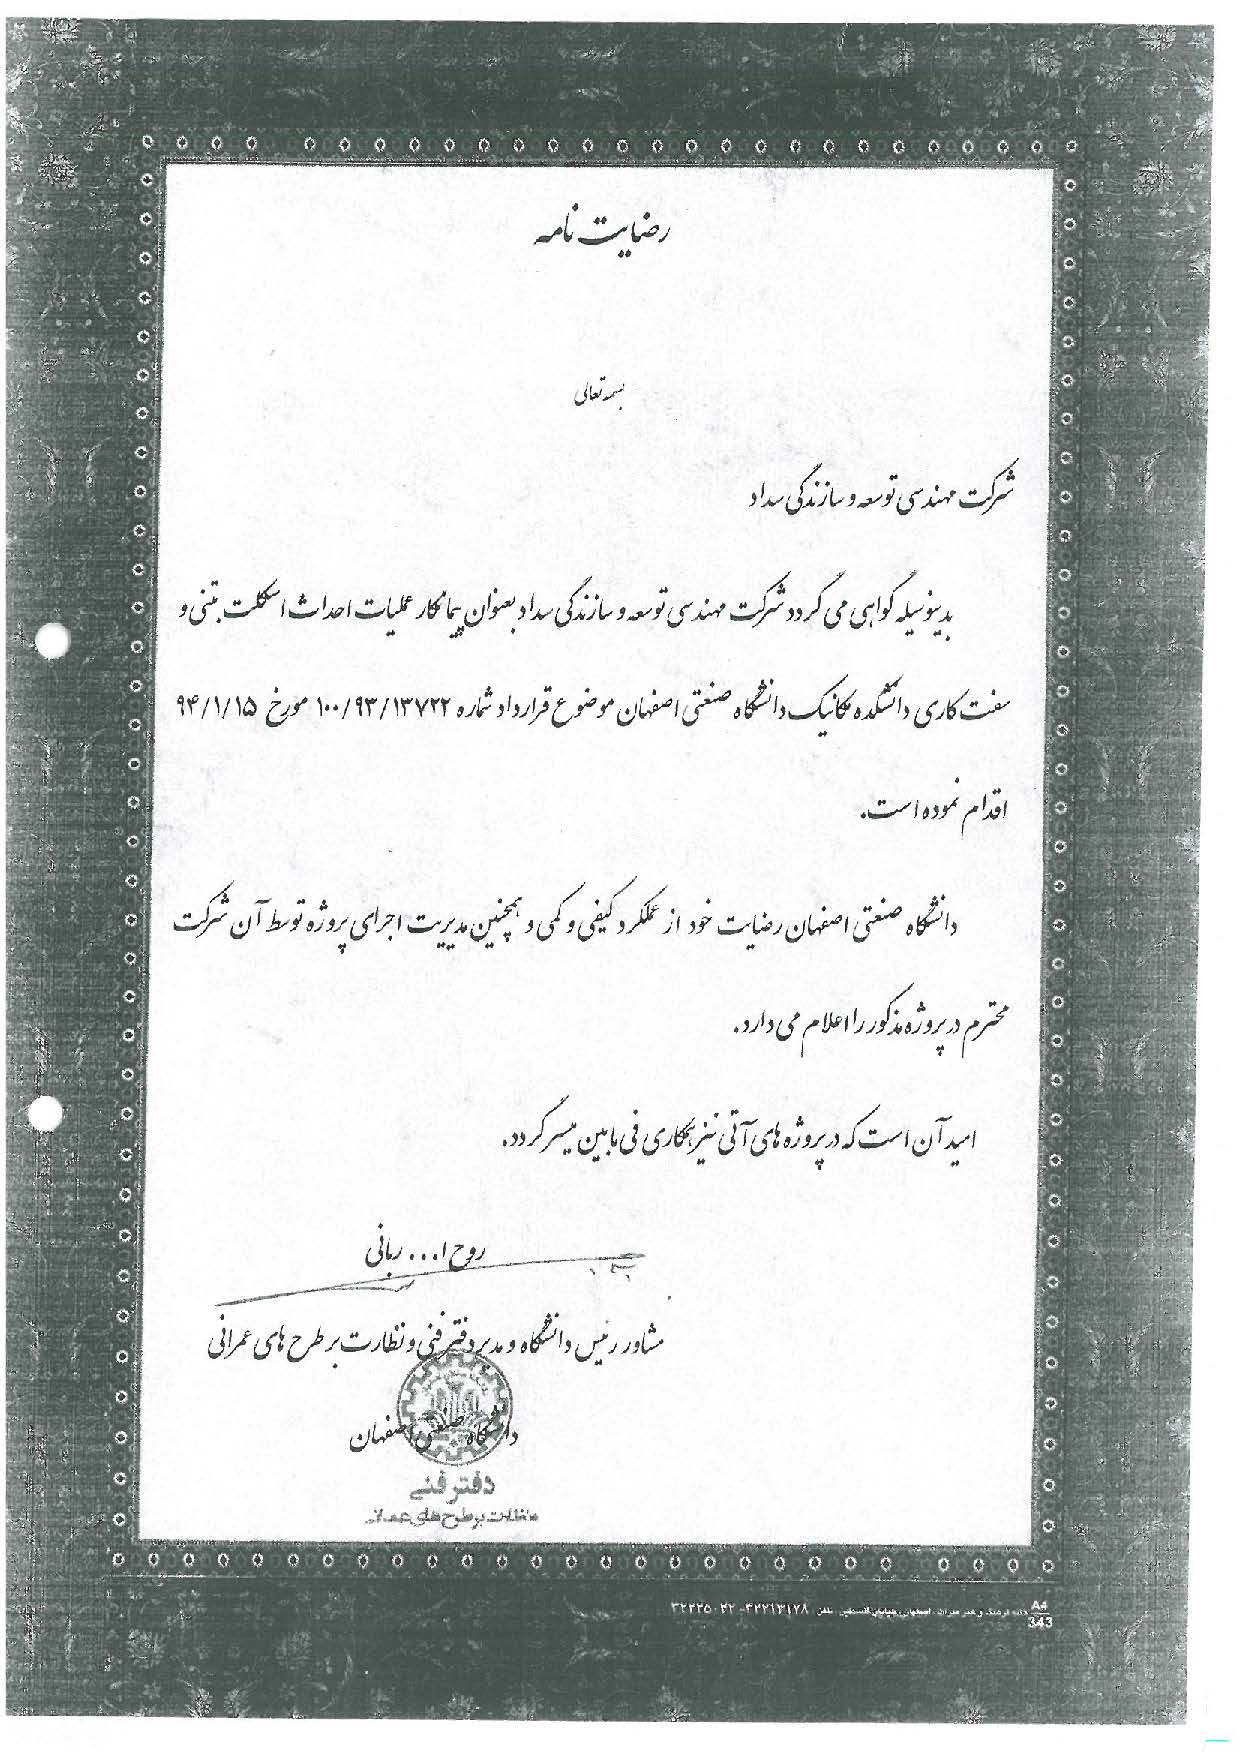 رضایت نامه
بسمه تعالی
شرکت مهندسی توسعه و سازندگی سداد
بدینوسیله گواهی می گردد شرکت مهندسی توسعه و سازندگی سداد بعنوان پیمانکار عملیات احداث اسکلت بتنی و
سفت کاری دانشکده مکانیک دانشگاه صنعتی اصفهان موضوع قرارداد شماره ۱۰۰/۹۳/۱۳۷۲۲ مورخ ۹۴/۱/۱۵
اقدام نموده است.
دانشگاه صنعتی اصفهان رضایت خود از عملکرد کیفی و کمی و همچنین مدیریت اجرای پروژه توسط آن شرکت
محترم در پروژه مذکور را اعلام می دارد.
امید آن است که در پروژه های آتی نیز همکاری فی مابین میسر گردد.
روح ا... ربانی
مشاور رئیس دانشگاه و مدیر دفتر فنی و نظارت بر طرح های عمرانی
دانشگاه صنعتی اصفهان
دفتر فنی
نظارت بر طرح های
A4
343
اصفهان، خیابان تلفن ۳۲۲۱۳۱۷۸ - ۳۲۲۲۵۰۲۲